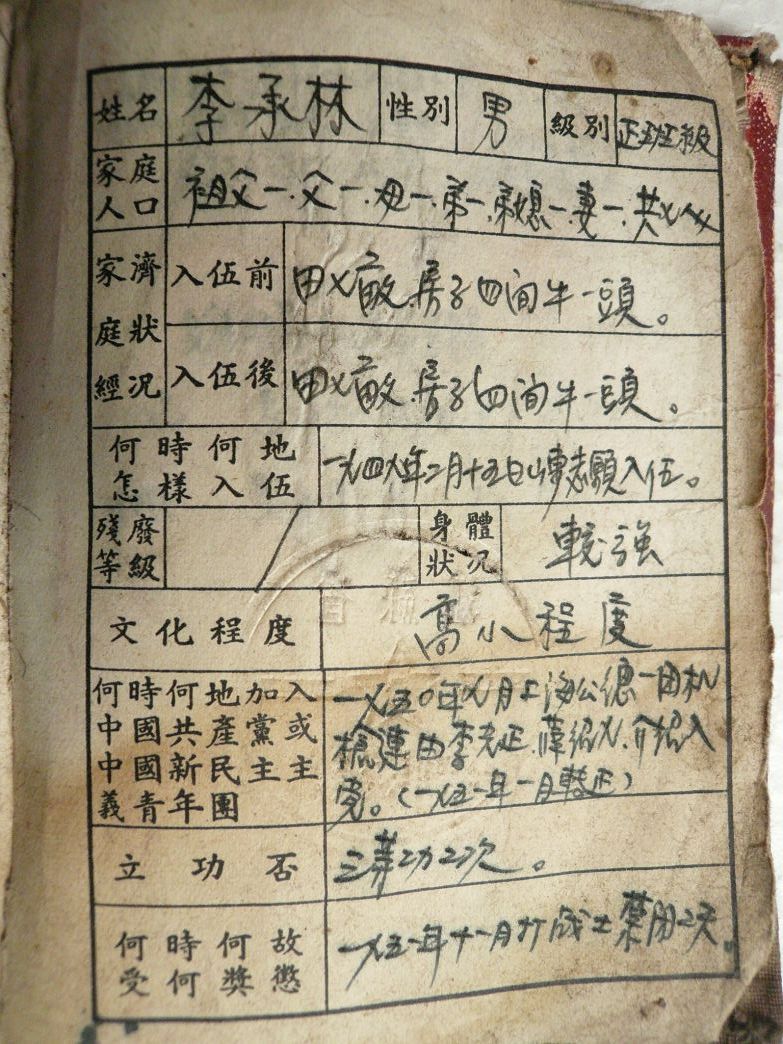 姓名 李承林 性別 男 級別 正班級
家庭人口 祖父一.父一.母一.弟一.弟媳一.妻一.共七人
家庭經濟狀況 入伍前 田七畝房子四间牛一頭。
入伍後 田七畝房子四间牛一頭。
何時何地怎樣入伍 一九四八年二月十五日山東志願入伍。
残廢等級 / 身體狀况 較強
文化程度 高小程度
何時何地加入 一九五〇年七月上海公總一团机
中國共產黨或 槍連由李志正.薛绍义.介绍入
中國新民主主 党。(一九五一年一月轉正)
義青年團
立功否 三等功2次。
何時何故受何獎懲 一九五一年十一月打战士禁闭2天。